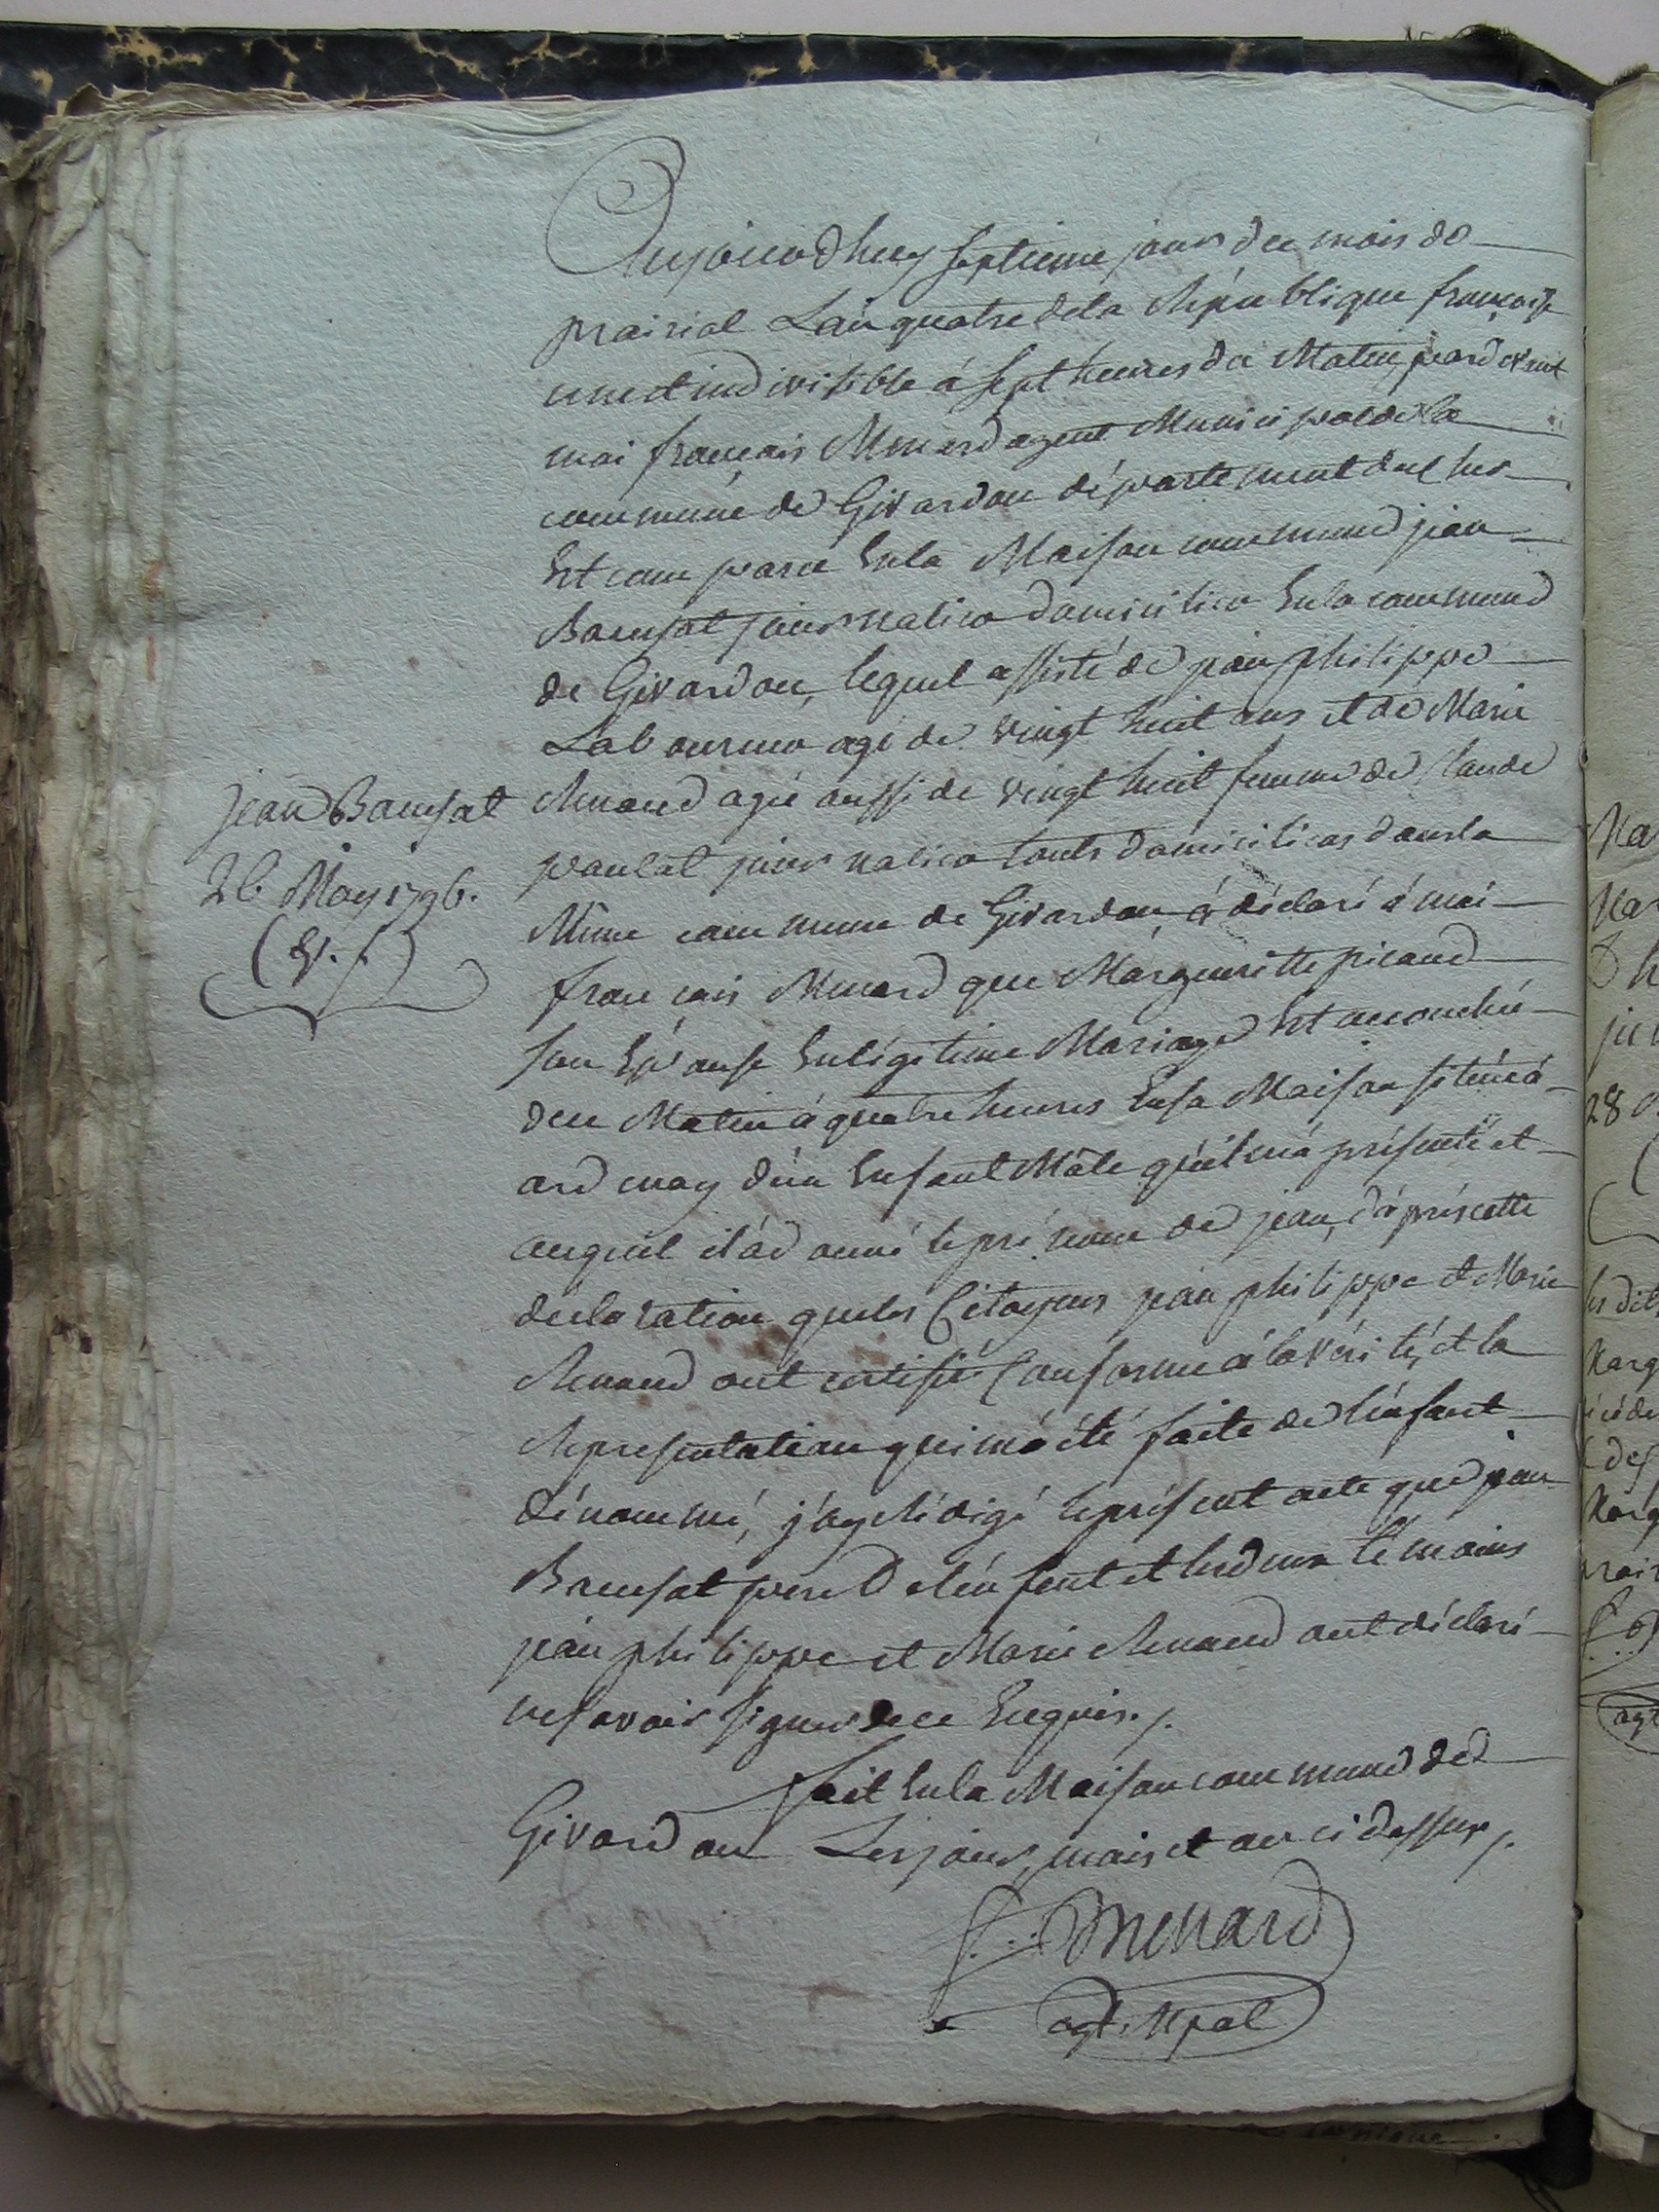 Aujourdhuy septieme jour du mois de
prairial Lan quatre dela République française
une et indivisible á sept heures du Matin, pardevant
moi français Menard agent Municipal de la
commune de Givardon département du Cher
Est comparu En la Maison commune jean
Bausat journalier domicilier En la commune
de Givardon, lequel assisté de jean philippe
Laboureur agé de vingt huit ans et de Marie
Renaud agée aussi de vingt huit femme de Claude
paulat journalier touts domiciliers dans la
Même commune de Givardon, á déclaré á moi
français Menard que Margueritte picaud
son Epouse En légitime Mariage Est accouchée
du Matin á quatre heures En sa Maison située á
ard may d'un Enfant Mâle qu'il m'á présenté et
auquel il á donné le prénom de jean, d'áprés cette
declaration que les Citoyens jean philippe et Marie
Renaud ont certifié Conforme á la vérité, et la
Representation qui m'á été faite de l'énfant
dénommé, j'ay Rédigé le présent acte que jean
Bausat pere De l'énfent et les deux témoins
jean philippe et Marie Renaud ont déclaré
ne savoir signer de ce Enquis ./.
fait En la Maison commune de
Givardon Les jour, mois et an ci dessus ./.
f... Menard
agt. Mpal
Jean Bausat
26 May 1796.
Ma
Mar
ju
28
les dit
Marg
Marg
prair
agt